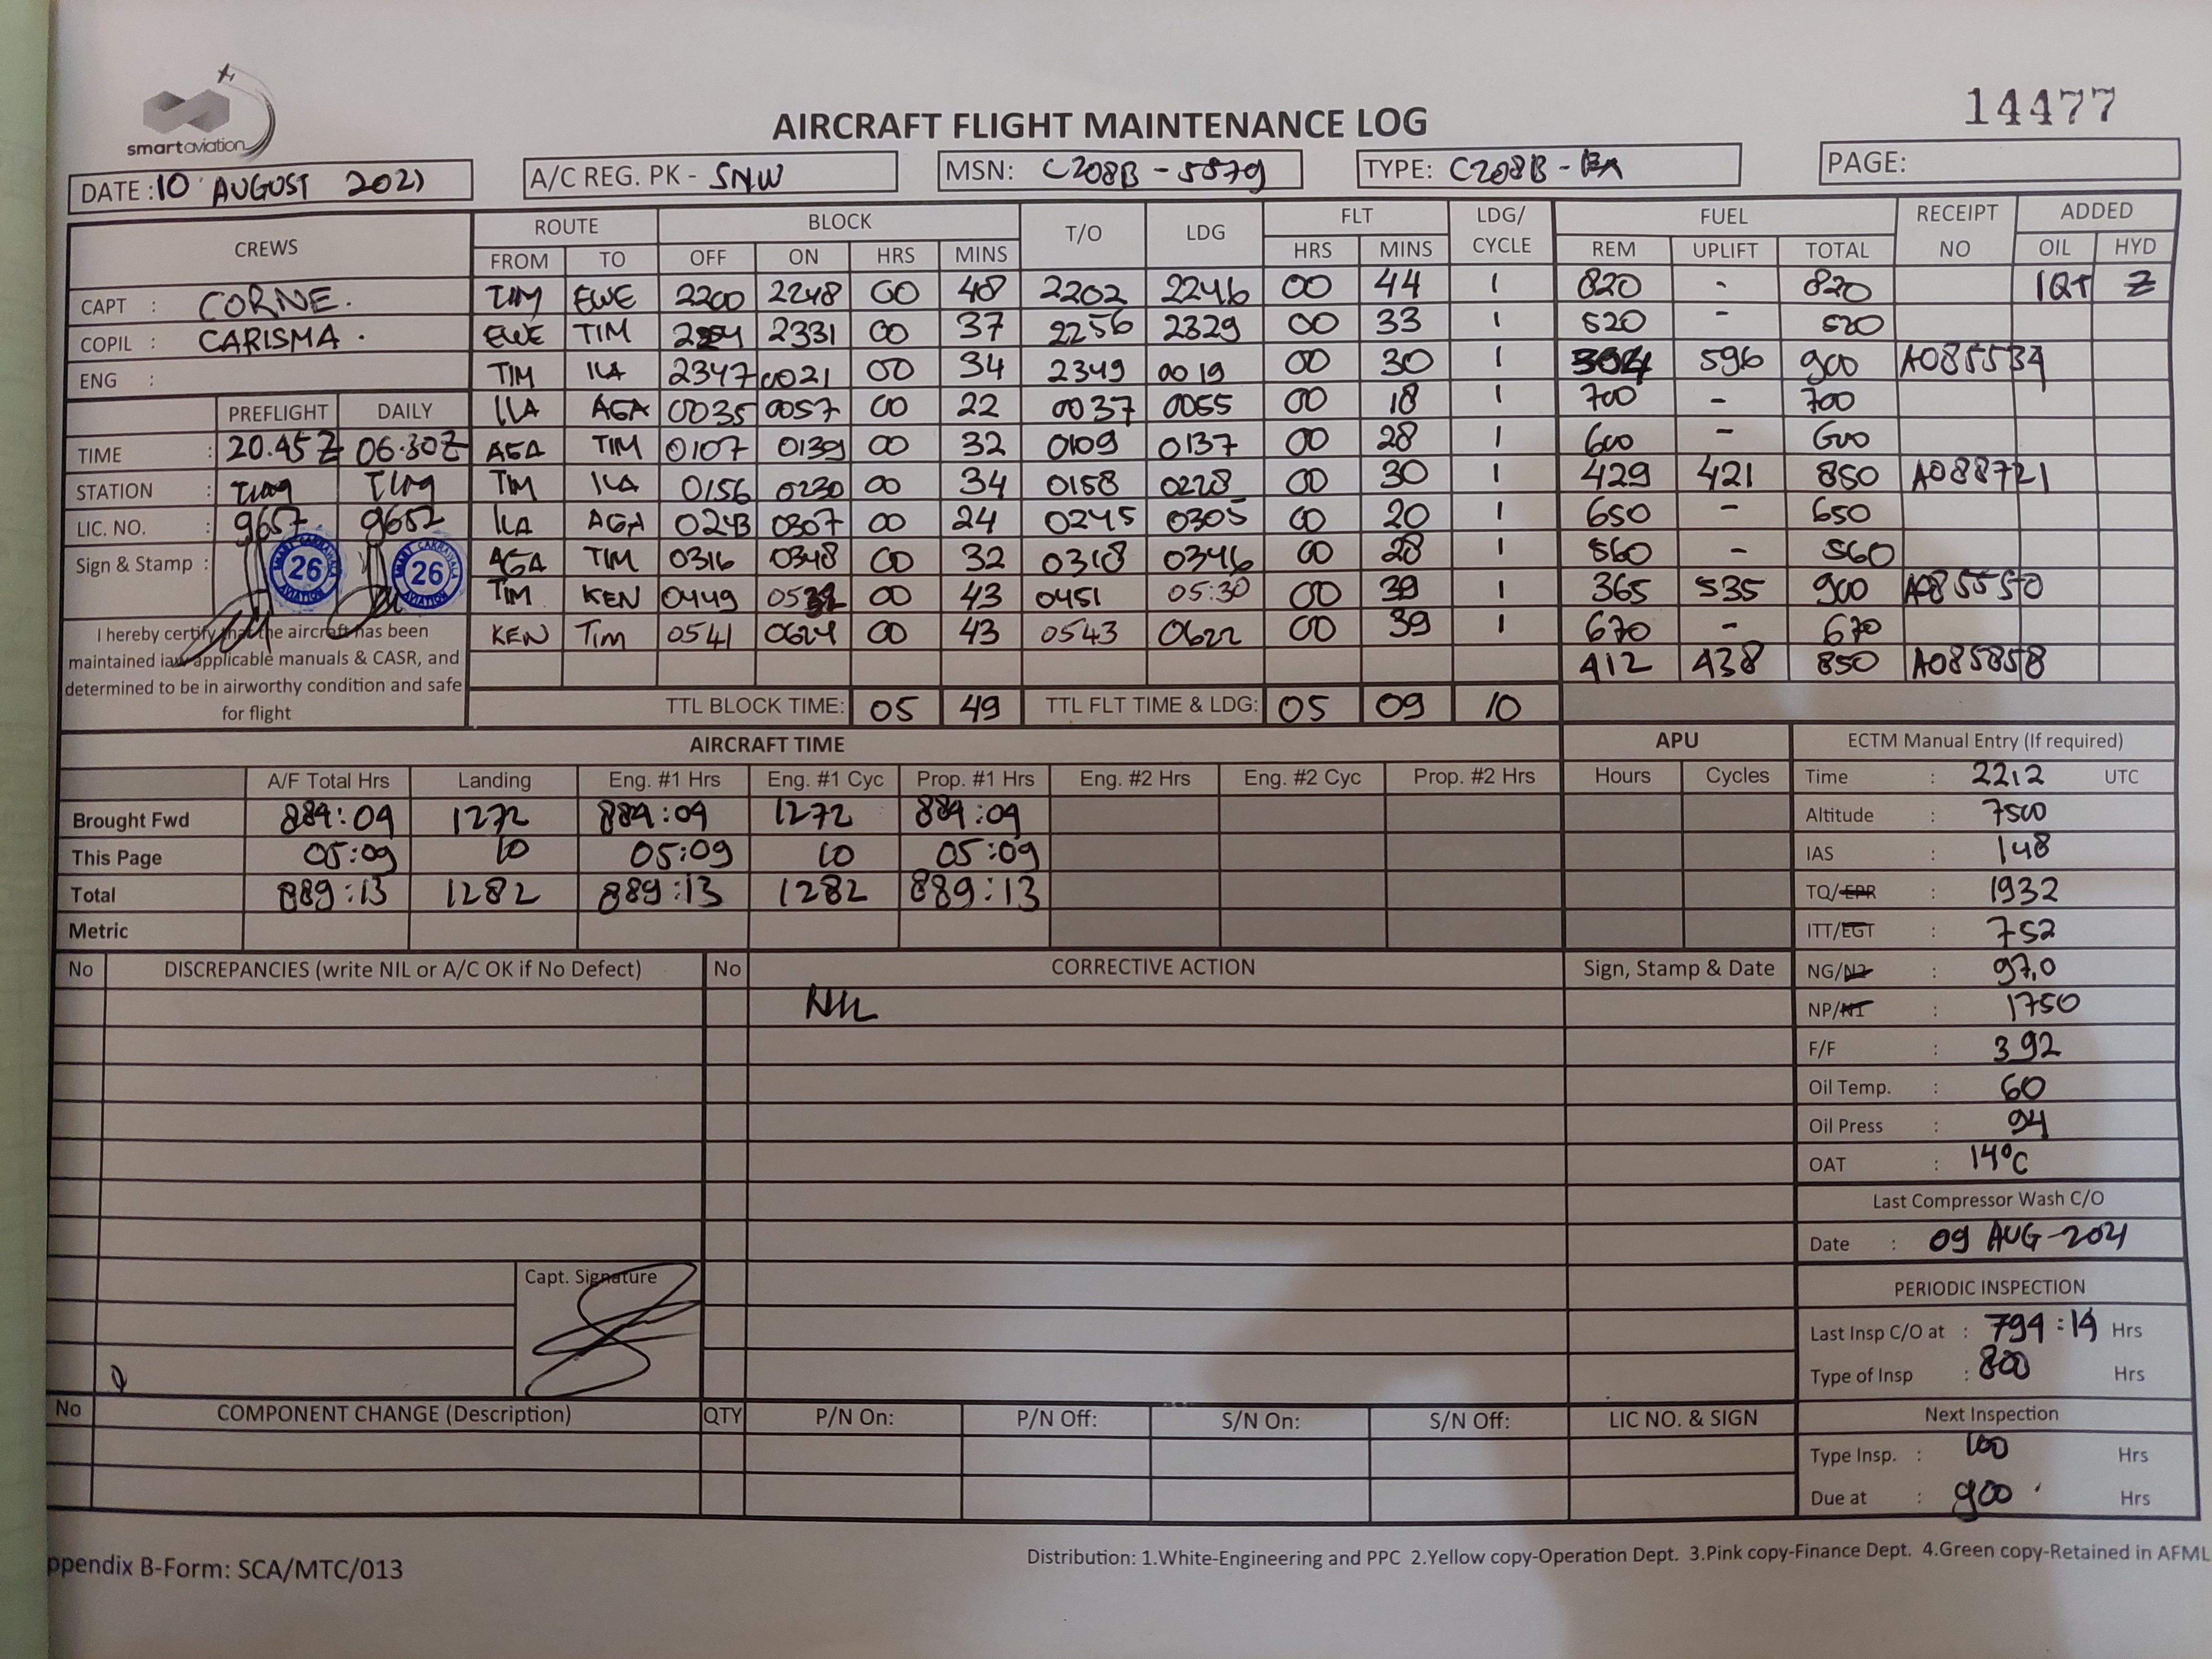 smartaviation
14477
AIRCRAFT FLIGHT MAINTENANCE LOG
DATE : 10 AUGUST 2021
A/C REG. PK - SNW
MSN: C208B - 5579
TYPE: C208B - EX
PAGE:
CREWS ROUTE BLOCK T/O LDG FLT LDG/ CYCLE FUEL RECEIPT NO ADDED
FROM TO OFF ON HRS MINS HRS MINS REM UPLIFT TOTAL OIL HYD
CAPT : CORNE. TIM EWE 2200 2248 00 48 2202 2246 00 44 1 820 - 820 1QT Z
COPIL : CARISMA. EWE TIM 2254 2331 00 37 2256 2329 00 33 1 520 - 520
ENG : TIM ILA 2347 0021 00 34 2349 0019 00 30 1 304 596 900 A085534
PREFLIGHT DAILY ILA AGA 0035 0057 00 22 0037 0055 00 18 1 700 - 700
TIME : 20.45Z 06.30Z AGA TIM 0107 0139 00 32 0109 0137 00 28 1 600 - 600
STATION : TIM ILA 0156 0230 00 34 0158 0228 00 30 1 429 421 850 A088721
LIC. NO. : 9657 9657 ILA AGA 0243 0307 00 24 0245 0305 00 20 1 650 - 650
Sign & Stamp : 26 26 AGA TIM 0316 0348 00 32 0318 0346 00 28 1 560 - 560
TIM KEN 0449 0532 00 43 0451 05:30 00 39 1 365 535 900 A085550
KEN TIM 0541 0624 00 43 0543 0622 00 39 1 670 - 670
412 438 850 A085858
I hereby certify that the aircraft has been
maintained iaw applicable manuals & CASR, and
determined to be in airworthy condition and safe
for flight
TTL BLOCK TIME: 05 49 TTL FLT TIME & LDG: 05 09 10
AIRCRAFT TIME APU ECTM Manual Entry (If required)
A/F Total Hrs Landing Eng. #1 Hrs Eng. #1 Cyc Prop. #1 Hrs Eng. #2 Hrs Eng. #2 Cyc Prop. #2 Hrs Hours Cycles
Brought Fwd 884:04 1272 884:04 1272 884:04
This Page 05:09 10 05:09 10 05:09
Total 889:13 1282 889:13 1282 889:13
Metric
Time : 2212 UTC
Altitude : 7500
IAS : 148
TQ/EPR : 1932
ITT/EGT : 752
NG/N2 : 97,0
NP/N1 : 1750
F/F : 392
Oil Temp. : 60
Oil Press : 94
OAT : 14°C
Last Compressor Wash C/O
Date : 09 AUG-2021
PERIODIC INSPECTION
Last Insp C/O at : 794:14 Hrs
Type of Insp : 800 Hrs
Next Inspection
Type Insp. : 100 Hrs
Due at : 900 Hrs
No DISCREPANCIES (write NIL or A/C OK if No Defect) No CORRECTIVE ACTION Sign, Stamp & Date
NIL
Capt. Signature
No COMPONENT CHANGE (Description) QTY P/N On: P/N Off: S/N On: S/N Off: LIC NO. & SIGN
ppendix B-Form: SCA/MTC/013
Distribution: 1.White-Engineering and PPC 2.Yellow copy-Operation Dept. 3.Pink copy-Finance Dept. 4.Green copy-Retained in AFML